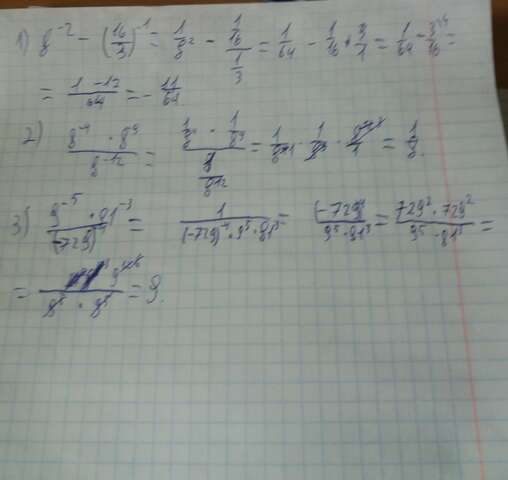 1) 8^-2 - (16/3)^-1 = 1/8^2 - (1/16)/(1/3) = 1/64 - 1/16 * 3/1 = 1/64 - 3/16 =
= (1 - 12)/64 = - 11/64
2) (8^-4 · 8^-9)/8^-12 = (1/8^4 · 1/8^9)/(1/8^12) = · = 1/8.
3) (9^-5 · 81^-3)/(-729)^-4 = 1/((-729)^-4 · 9^5 · 81^3) = (-729)^4/(9^5 · 81^3) = (729^2 · 729^2)/(9^5 · 81^3) =
= = 9.